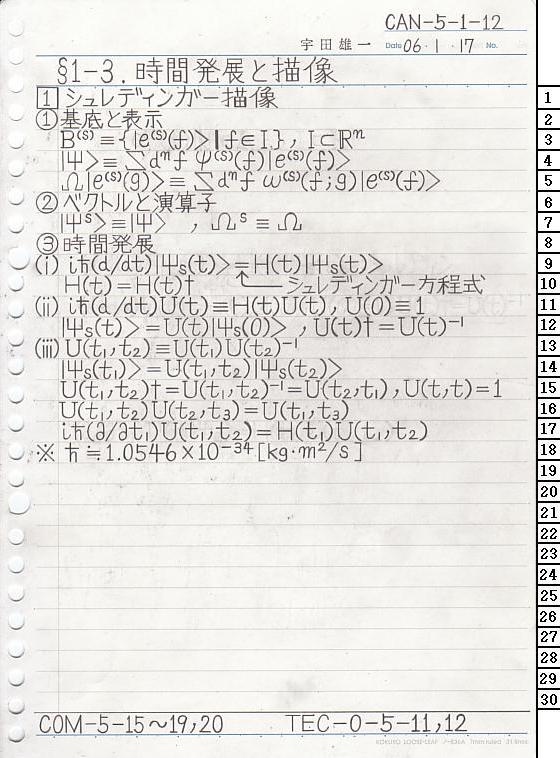 CAN-5-1-12
宇田雄一 Date 06・1・17 No.
§1-3. 時間発展と描像
1 シュレディンガー描像
①基底と表示
B⁽ˢ⁾≡{|e⁽ˢ⁾(f)>|f∈I}, I⊂ℝⁿ
|Ψ>≡∑dⁿf Ψ⁽ˢ⁾(f)|e⁽ˢ⁾(f)>
Ω|e⁽ˢ⁾(g)>≡∑dⁿf ω⁽ˢ⁾(f;g)|e⁽ˢ⁾(f)>
②ベクトルと演算子
|Ψˢ>≡|Ψ> , Ωˢ≡Ω
③時間発展
(i) iħ(d/dt)|Ψₛ(t)>=H(t)|Ψₛ(t)>
H(t)=H(t)† シュレディンガー方程式
(ii) iħ(d/dt)U(t)≡H(t)U(t), U(0)≡1
|Ψₛ(t)>=U(t)|Ψₛ(0)> , U(t)†=U(t)⁻¹
(iii) U(t₁,t₂)≡U(t₁)U(t₂)⁻¹
|Ψₛ(t₁)>=U(t₁,t₂)|Ψₛ(t₂)>
U(t₁,t₂)†=U(t₁,t₂)⁻¹=U(t₂,t₁), U(t,t)=1
U(t₁,t₂)U(t₂,t₃)=U(t₁,t₃)
iħ(∂/∂t₁)U(t₁,t₂)=H(t₁)U(t₁,t₂)
※ ħ≒1.0546×10⁻³⁴[kg·m²/s]
1
2
3
4
5
6
7
8
9
10
11
12
13
14
15
16
17
18
19
20
21
22
23
24
25
26
27
28
29
30
COM-5-15~19,20 TEC-0-5-11,12
KOKUYO LOOSE-LEAF ノ-836A 7mm ruled 31 lines